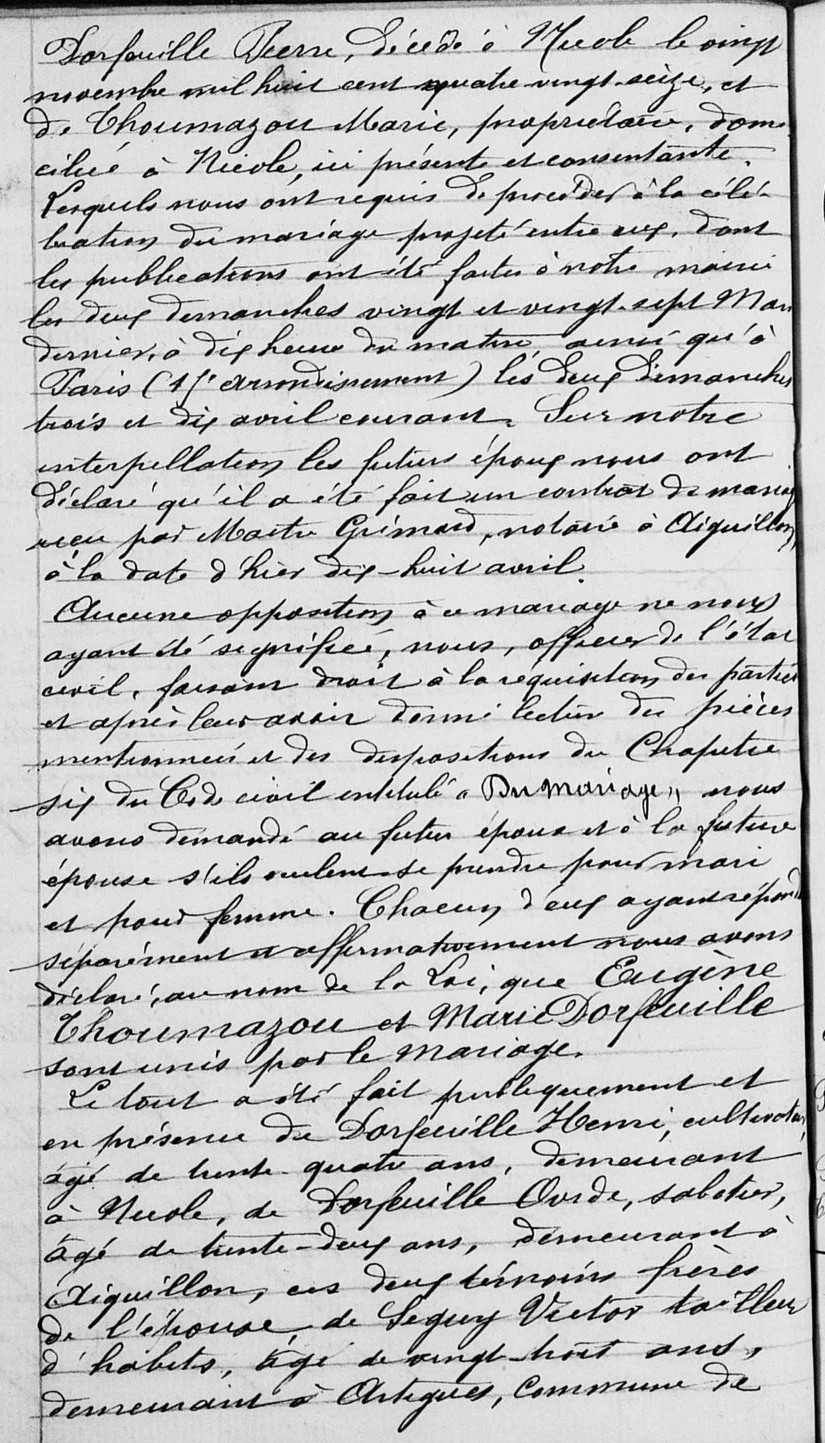 Dorfeuille Pierre, décédé à Nicole le vingt
novembre mil huit cent quatre-vingt-seize, et
de Thoumazou Marie, propriétaire, domi
ciliée à Nicole, ici présente et consentante.
Lesquels nous ont requis de procéder à la célé-
bration du mariage projeté entre eux, dont
les publications ont été faites à notre mairie
les deux dimanches vingt et vingt-sept Mars
dernier, à dix heures du matin ainsi qu'à
Paris ( arrondissement) les deux dimanches
trois et dix avril courant. Sur notre
interpellation les futurs époux nous ont
déclaré qu'il a été fait un contrat de mariage
reçu par Maître Grimard, notaire à Aiguillon,
à la date d'hier dix-huit avril.
Aucune opposition à ce mariage ne nous
ayant été signifiée, nous, officier de l'état
civil, faisant droit à la réquisition des parties
et après leur avoir donné lecture des pièces
mentionnées et des dispositions du Chapitre
six du Code civil intitulé « Du Mariage », nous
avons demandé au futur époux et à la future
épouse s'ils veulent se prendre pour mari
et pour femme. Chacun d'eux ayant répondu
séparément et affirmativement nous avons
déclaré, au nom de la Loi, que Eugène
Thoumazou et Marie Dorfeuille
sont unis par le Mariage.
Le tout a été fait publiquement et
en présence de Dorfeuille Henri, cultivateur,
âgé de trente-quatre ans, demeurant
à Nicole, de Dorfeuille Ovide, sabotier,
âgé de trente-deux ans, demeurant à
Aiguillon, ces deux témoins frères
de l'épouse, de Seguy Victor tailleur
d'habits, âgé de vingt-trois ans,
demeurant à Artigues, commune de